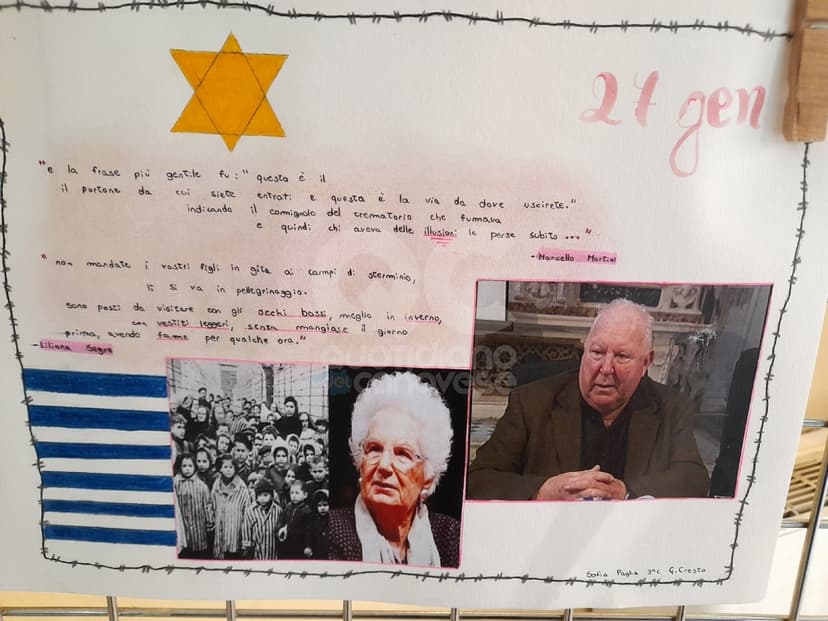 27 gen
"e la frase più gentile fu:" questo è il
il portone da cui siete entrati e questa è la via da dove uscirete."
indicando il comignolo del crematorio che fumava
e quindi chi aveva delle illusioni le perse subito ..."
- Marcello Martini
"non mandate i vostri figli in gita ai campi di sterminio,
lì si va in pellegrinaggio.
sono posti da visitare con gli occhi bassi, meglio in inverno,
con vestiti leggeri, senza mangiare il giorno
prima, avendo fame per qualche ora."
- Liliana Segre
quotidiano
del canavese
Sofia Paglia 3°C G. Cresto